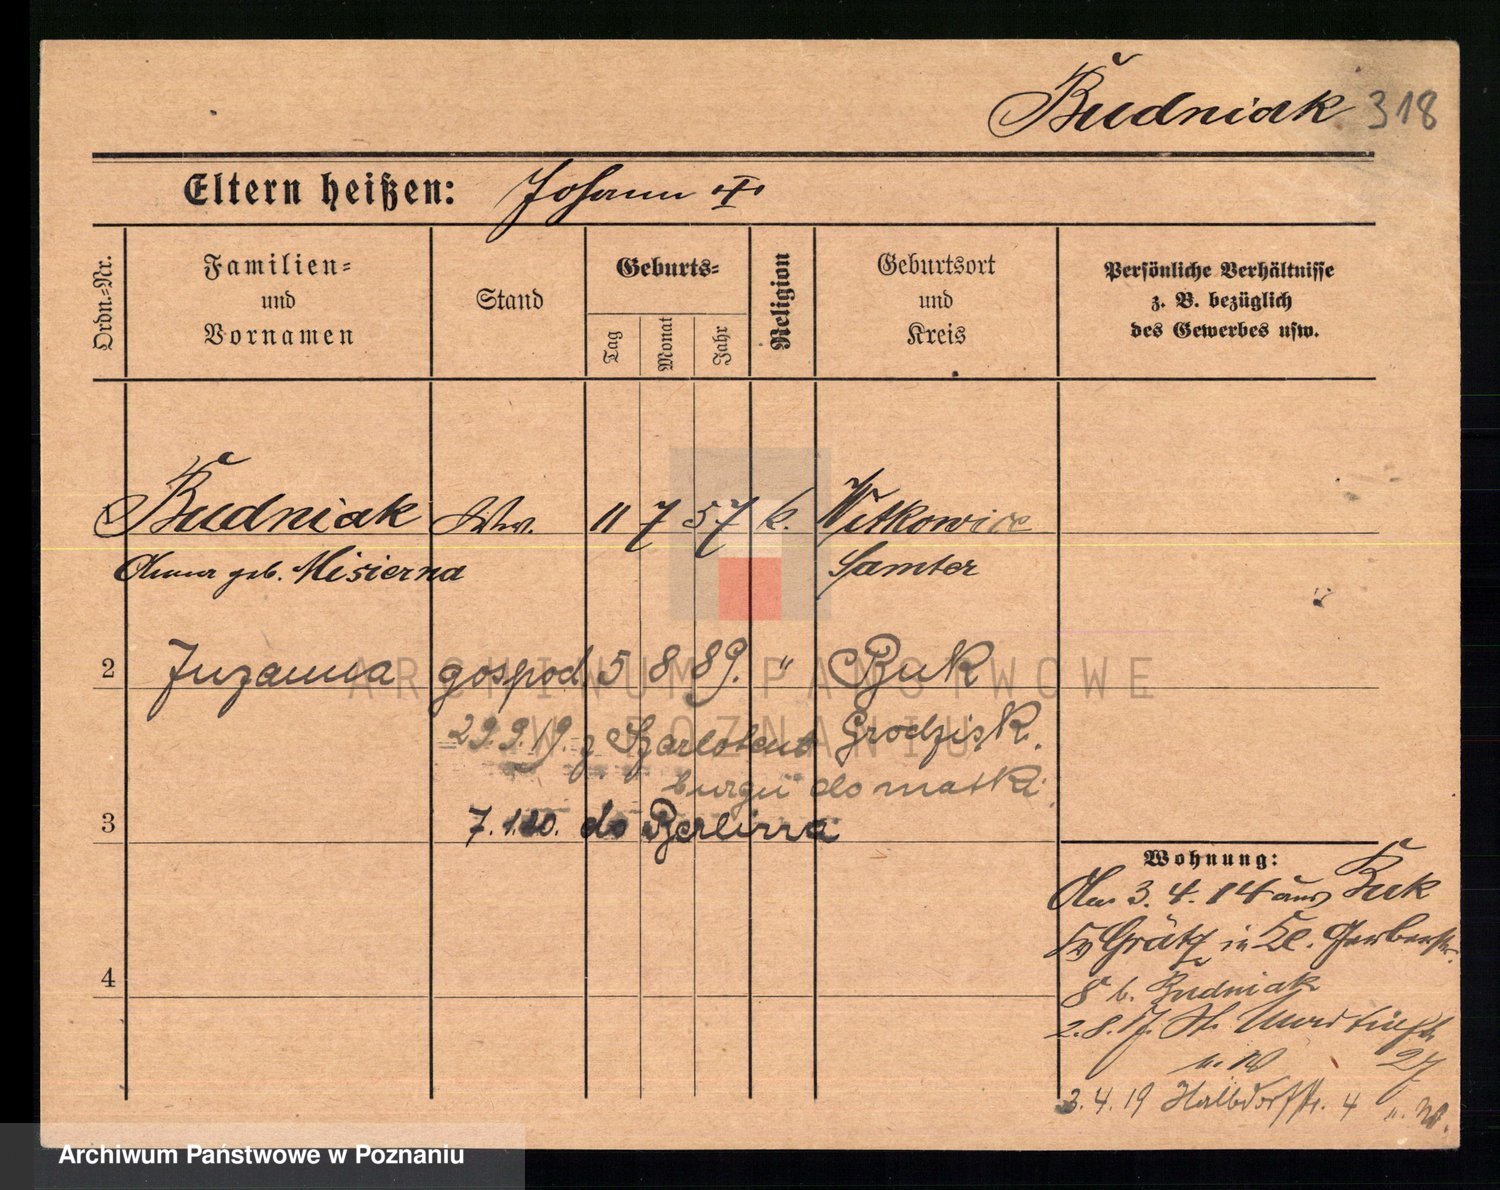 Budniak 318
Eltern heißen: Johann †
Ordn.-Nr.
Familien-
und
Vornamen
Stand
Geburts-
Tag
Monat
Jahr
Religion
Geburtsort
und
Kreis
Persönliche Verhältnisse
z. B. bezüglich
des Gewerbes usw.
Budniak Ww. 11 7 57 k. Witkowice
geb. Misierna Samter
2 Zuzanna gospod. 5 8 89. " Buk
29.9.19. z Szarlotenburgu do matki Grodzisk.
3 7.1.20. do Berlina
4
Wohnung:
3. 4. 14 aus Buk
Kr Grätz in Kl. Gerberstr.
8 b. Budniak
2.8.17. St. Martinstr.
27
u. W
3.4.19 Halbdorfstr. 4 u. W.
ARCHIWUM PAŃSTWOWE
W POZNANIU
Archiwum Państwowe w Poznaniu